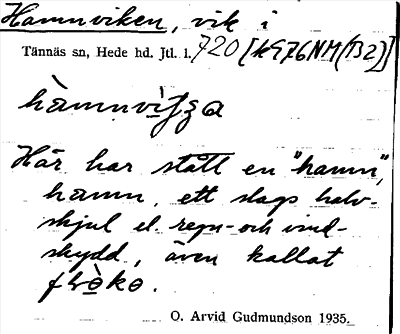 Hamnviken, vik i
Tännäs sn, Hede hd. Jtl. l. 720 [k976NM(B2)]
hàmnvìʃʒa
Här har stått en "hamn",
hamn, ett slags halv-
skjul el. regn- och vind-
skydd, även kallat
O. Arvid Gudmundson 1935.